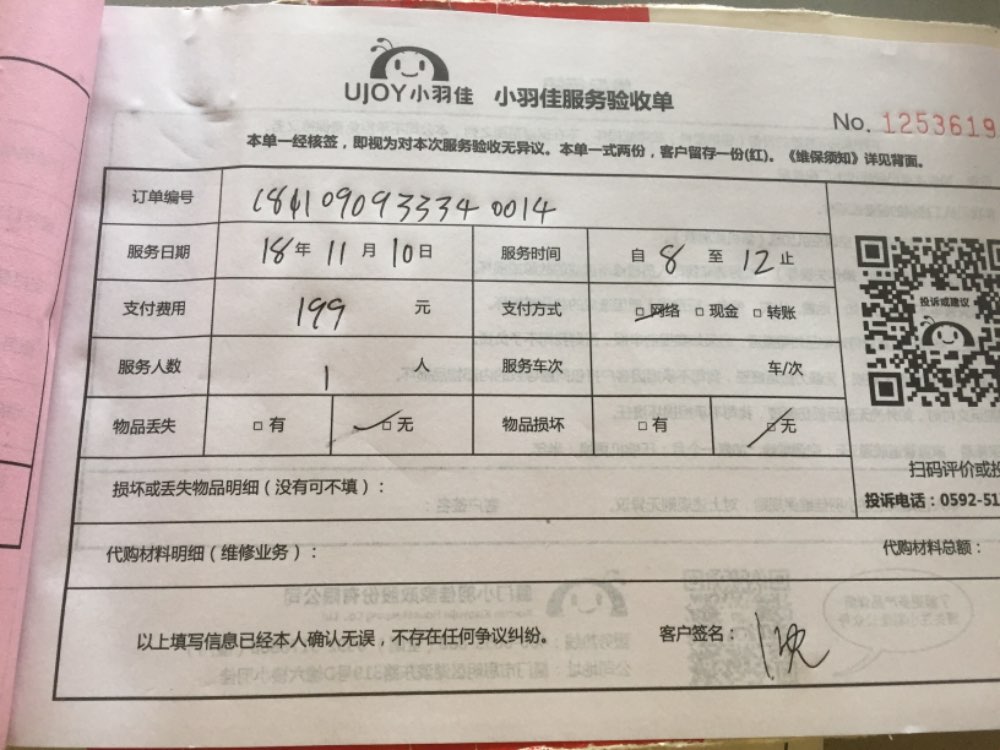 UJOY小羽佳 小羽佳服务验收单
No. 1253619
本单一经核签，即视为对本次服务验收无异议。本单一式两份，客户留存一份(红)。《维保须知》详见背面。
订单编号 1841090933340014
服务日期 18年11月10日 服务时间 自8至12止
支付费用 199 元 支付方式 □网络 □现金 □转账
投诉或建议
服务人数 1 人 服务车次 车/次
物品丢失 □有 □无 物品损坏 □有 □无
扫码评价或投
损坏或丢失物品明细（没有可不填）：
投诉电话：0592-51
代购材料明细（维修业务）： 代购材料总额：
以上填写信息已经本人确认无误，不存在任何争议纠纷。 客户签名：